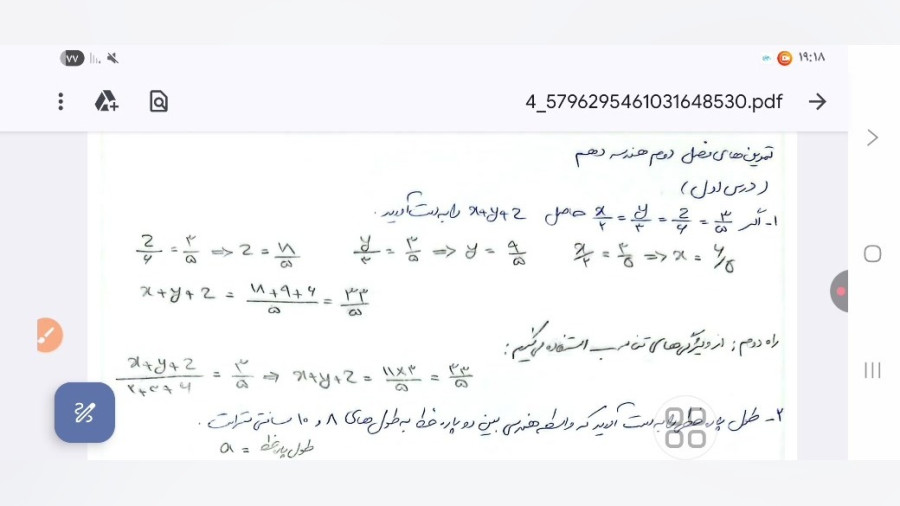 ۱۹:۱۸
4_5796295461031648530.pdf
تمرین‌های فصل دوم هندسه دهم
(درس اول)
۱- اگر x/۲ = y/۳ = z/۶ = ۳/۵ حاصل x+y+z را به دست آورید.
x/۲ = ۳/۵ ⇒ x = ۶/۵ y/۳ = ۳/۵ ⇒ y = ۹/۵ z/۶ = ۳/۵ ⇒ z = ۱۸/۵
x+y+z = (۱۸+۹+۶)/۵ = ۳۳/۵
راه دوم: از ویژگی‌های تناسب استفاده می‌کنیم:
(x+y+z)/(۲+۳+۶) = ۳/۵ ⇒ x+y+z = (۱۱×۳)/۵ = ۳۳/۵
۲- طول پاره خطی را به دست آورید که واسطه هندسی بین دو پاره خط به طول‌های ۸ و ۱۰ سانتی متر است.
طول پاره خط = a